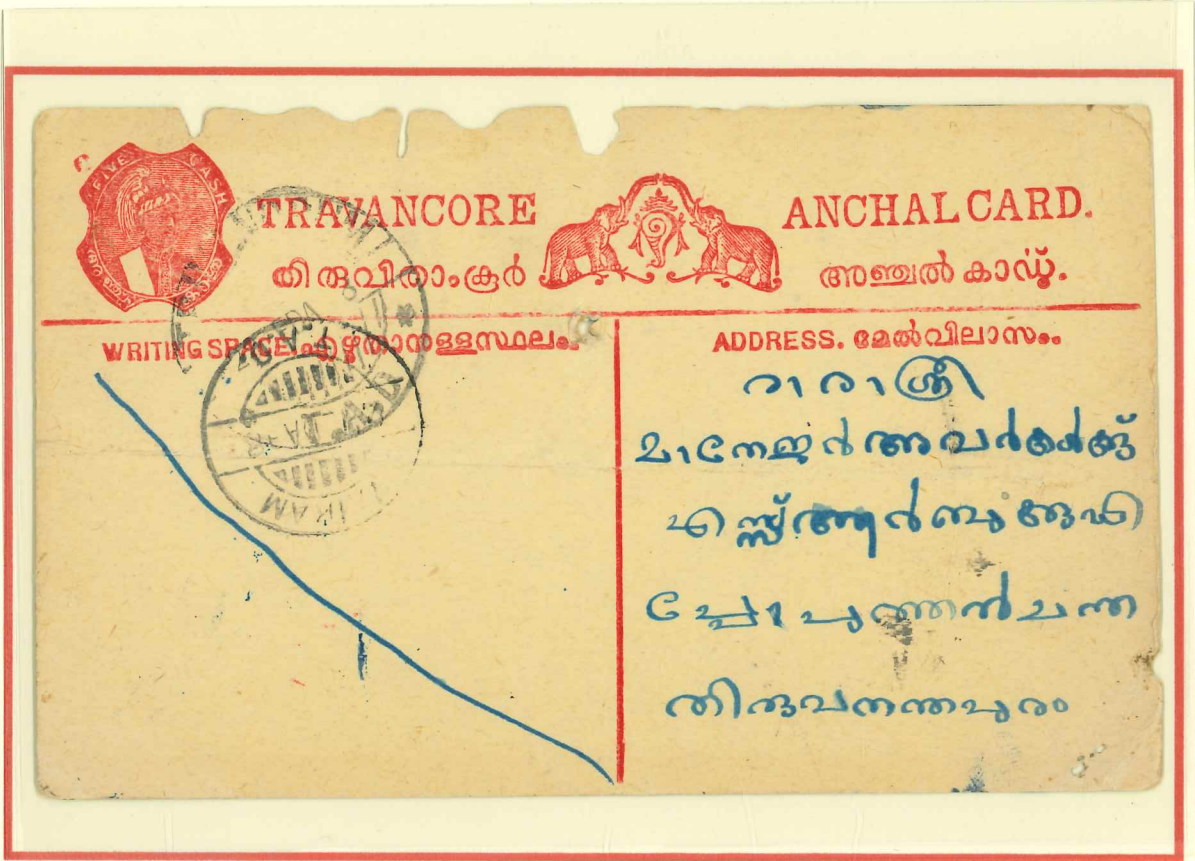 FIVE CASH
TRAVANCORE ANCHAL CARD.
തിരുവിതാംകൂർ അഞ്ചൽ കാഡു്.
WRITING SPACE. എഴുതാനുള്ളസ്ഥലം.
ADDRESS. മേൽവിലാസം.
രാ രാ ശ്രീ
മാനേജർ അവർകൾക്കു്
എസ്സ് ആർ ബുക്കുഡി
പ്പോ പുത്തൻചന്ത
തിരുവനന്തപുരം